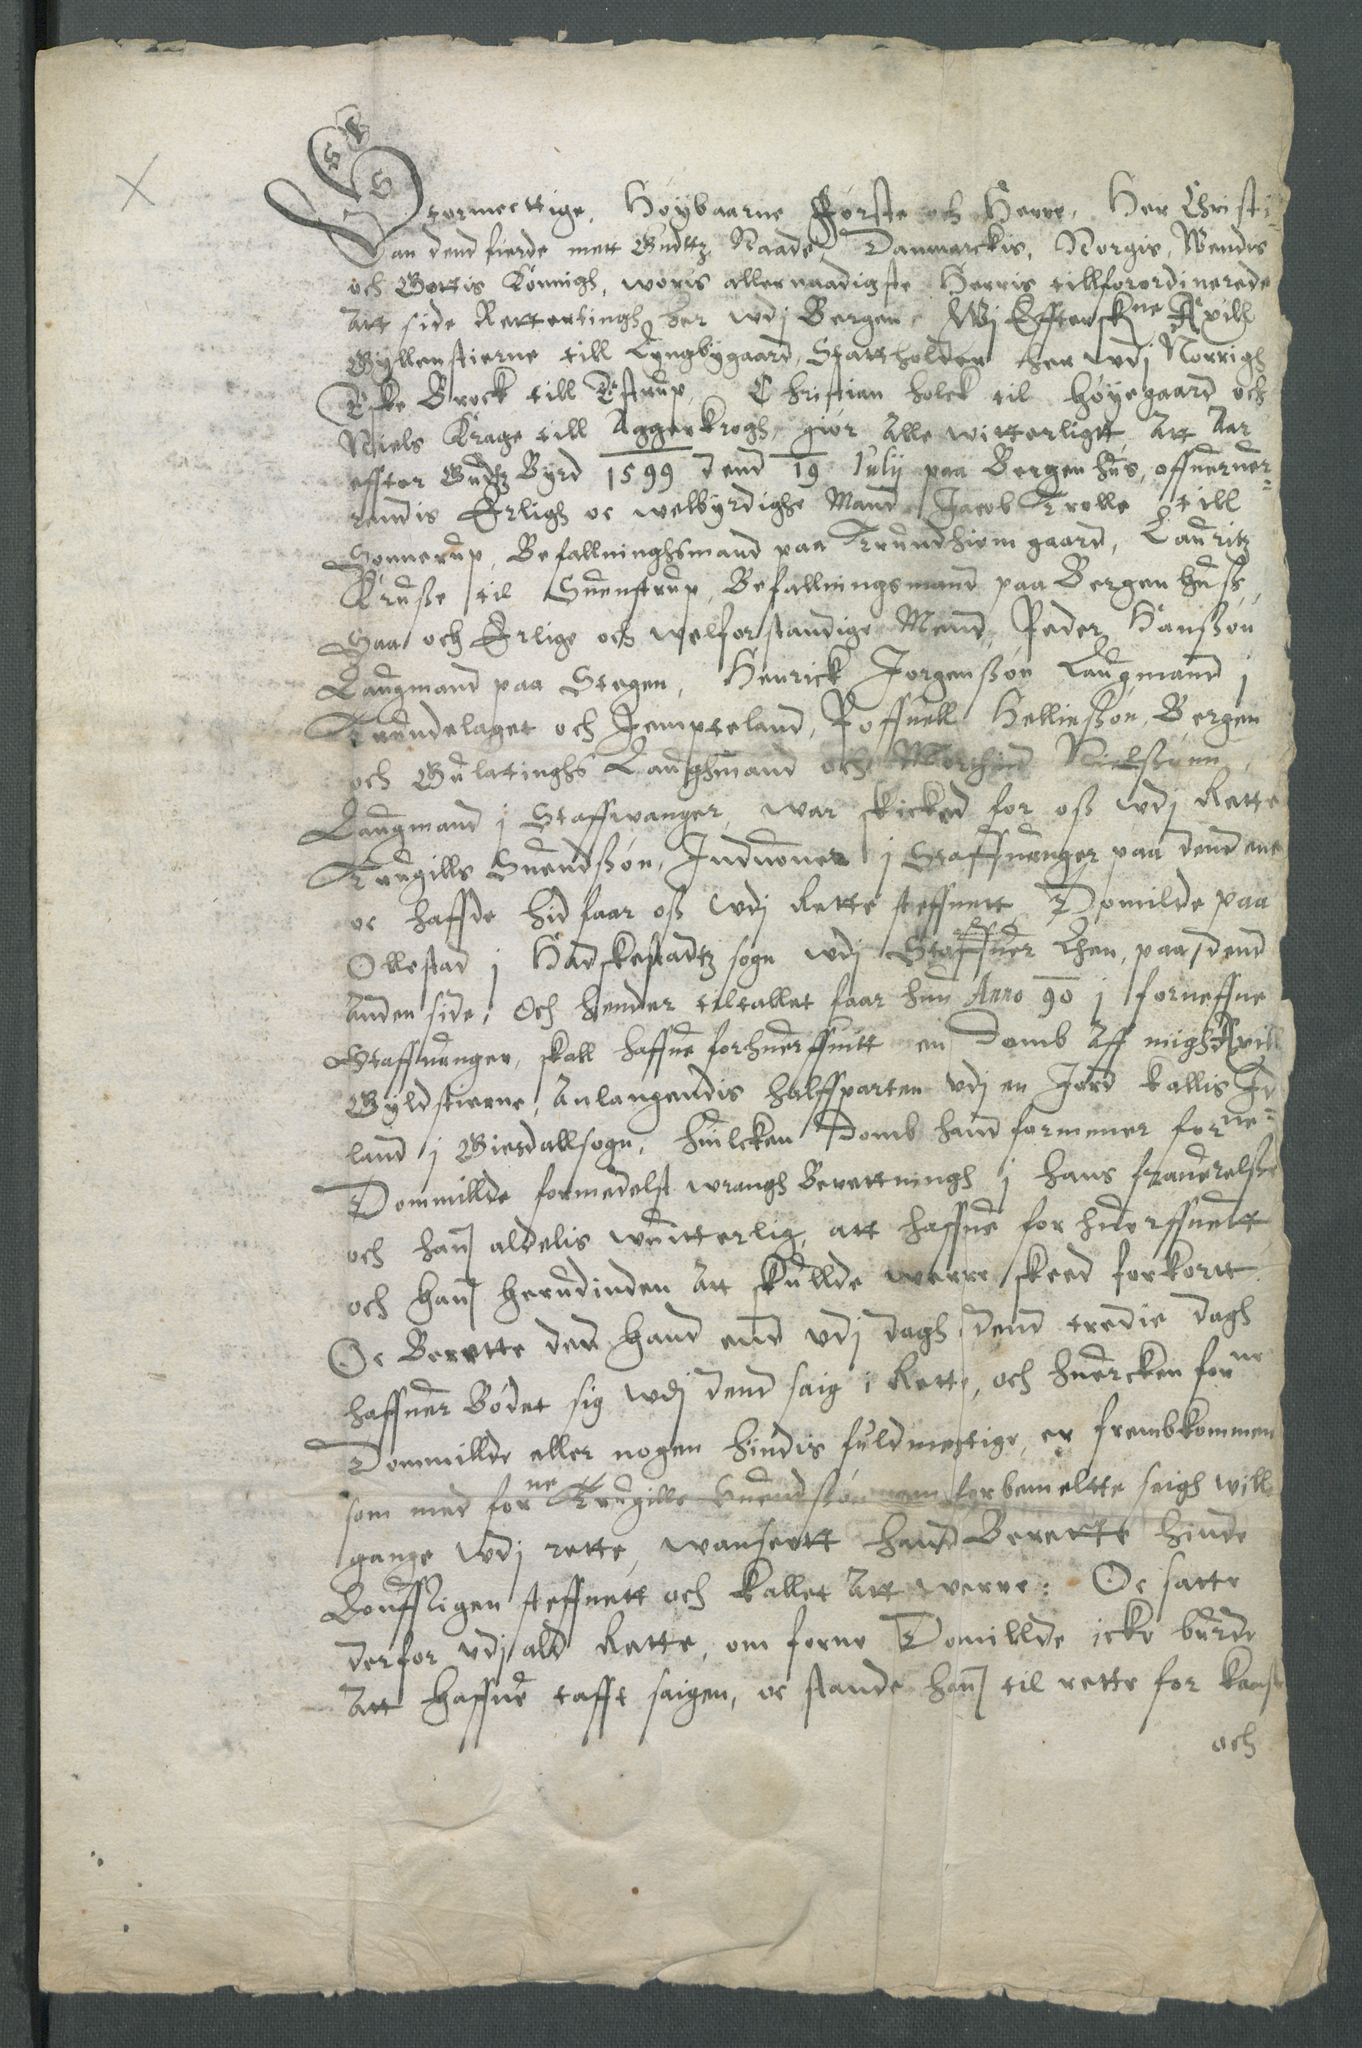 Stormecttige, Høybaarne Første och Herre, Her Christi-
an dend fierde mett Gudttz Naade, Danmarckis, Norgis, Wendis
och Gottis Konnigh, woris allernaadigste Herris tillforordinerede
Att side Rettertingh her wdj Bergen. Wj Effterskne Axill
Gyllenstierne till Lyngbygaard, Stattholder her wdj Norrigh
Eske Brock till Estrup, Christian holck til Høyegaard och
Niels Krage till Aggerkrogh, giør Alle witterligtt, Att Aar
effter Gudtz Byrd 1599 dend 19 Julij paa Bergenhus, offuerue-
rendis Erligh oc welbyrdighe Mand Jacob Trolle till
Sonnerup, Befallninghsmand paa Trundhiem gaard, Lauritz
Kruse til Suenstrup, Befallningsmand paa Bergenhuss,
Saa och Erlige och welforstandige Mend, Peder Hanssøn
Laugmand paa Stegen, Henrick Jørgenssøn Laugmand j
Trundelaget och Jempteland, Poffuell Helliessøn, Bergen
och Gulatinghs Laughmand och Nielssønn,
Laugmand j Staffuanger, war skicked for oss wdj Rette
Trugills Suendssøn, Induoner j Staffuanger paa dend ene
oc haffde hid faar oss wdj Rette steffnett Domilde paa
Ollestad j Hadskestadtz sogn wdj Staffuer Lhen, paa dend
Anden side, Och hender tiltallet faar hun Anno 90 j forneffne
Staffuanger, skall haffue forhuerffuitt en Domb Aff migh Axill
Gyldstierne, Anlangendis halffparten vdj en Jord kallis Jd
land j Giesdallsogn, huilcken Domb hand formener forne
Dommillde formedelst wrangh Berettningh j hans frauerelsse
och hannom aldelis wuitterlig, att haffue forhuerffuett
och hannom herudinden Att skullde werre skeed forkortt
Oc Berette der hand end vdj dagh, dend tredie dagh
haffuer Bødet sig wdj dend saig i Rette, och huercken forne
Dommillde eller nogen hindis fuldmegtige, er frembkommen
som med forne Trugills Suendssøn om forbemeltte saigh will
gange wdj rette, wanseett hand Berette hinde
Louffligen steffnett och kallet Att werre: Oc satte
derfor vdj ald Rette, om forne Domillde icke burde
Att haffue tafft saigen, oc stande hannom til rette for kaast
och